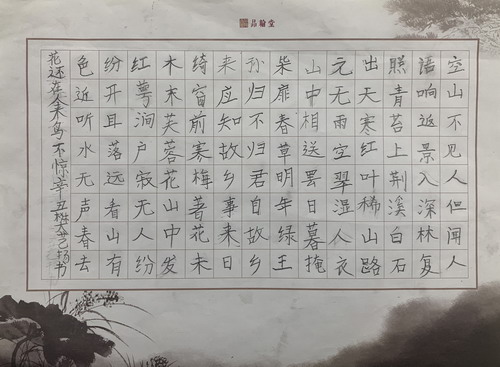 翰堂
空山不见人但闻人
语响返景入深林复
照青苔上荆溪白石
出天寒红叶稀山路
元无雨空翠湿人衣
山中相送罢日暮掩
柴扉春草明年绿王
孙归不归君自故乡
来应知故乡事来日
绮窗前寒梅著花未
木末芙蓉花山中发
红萼涧户寂无人纷
纷开耳落远看山有
色近听水无声春去
花还在人来鸟不惊辛丑书